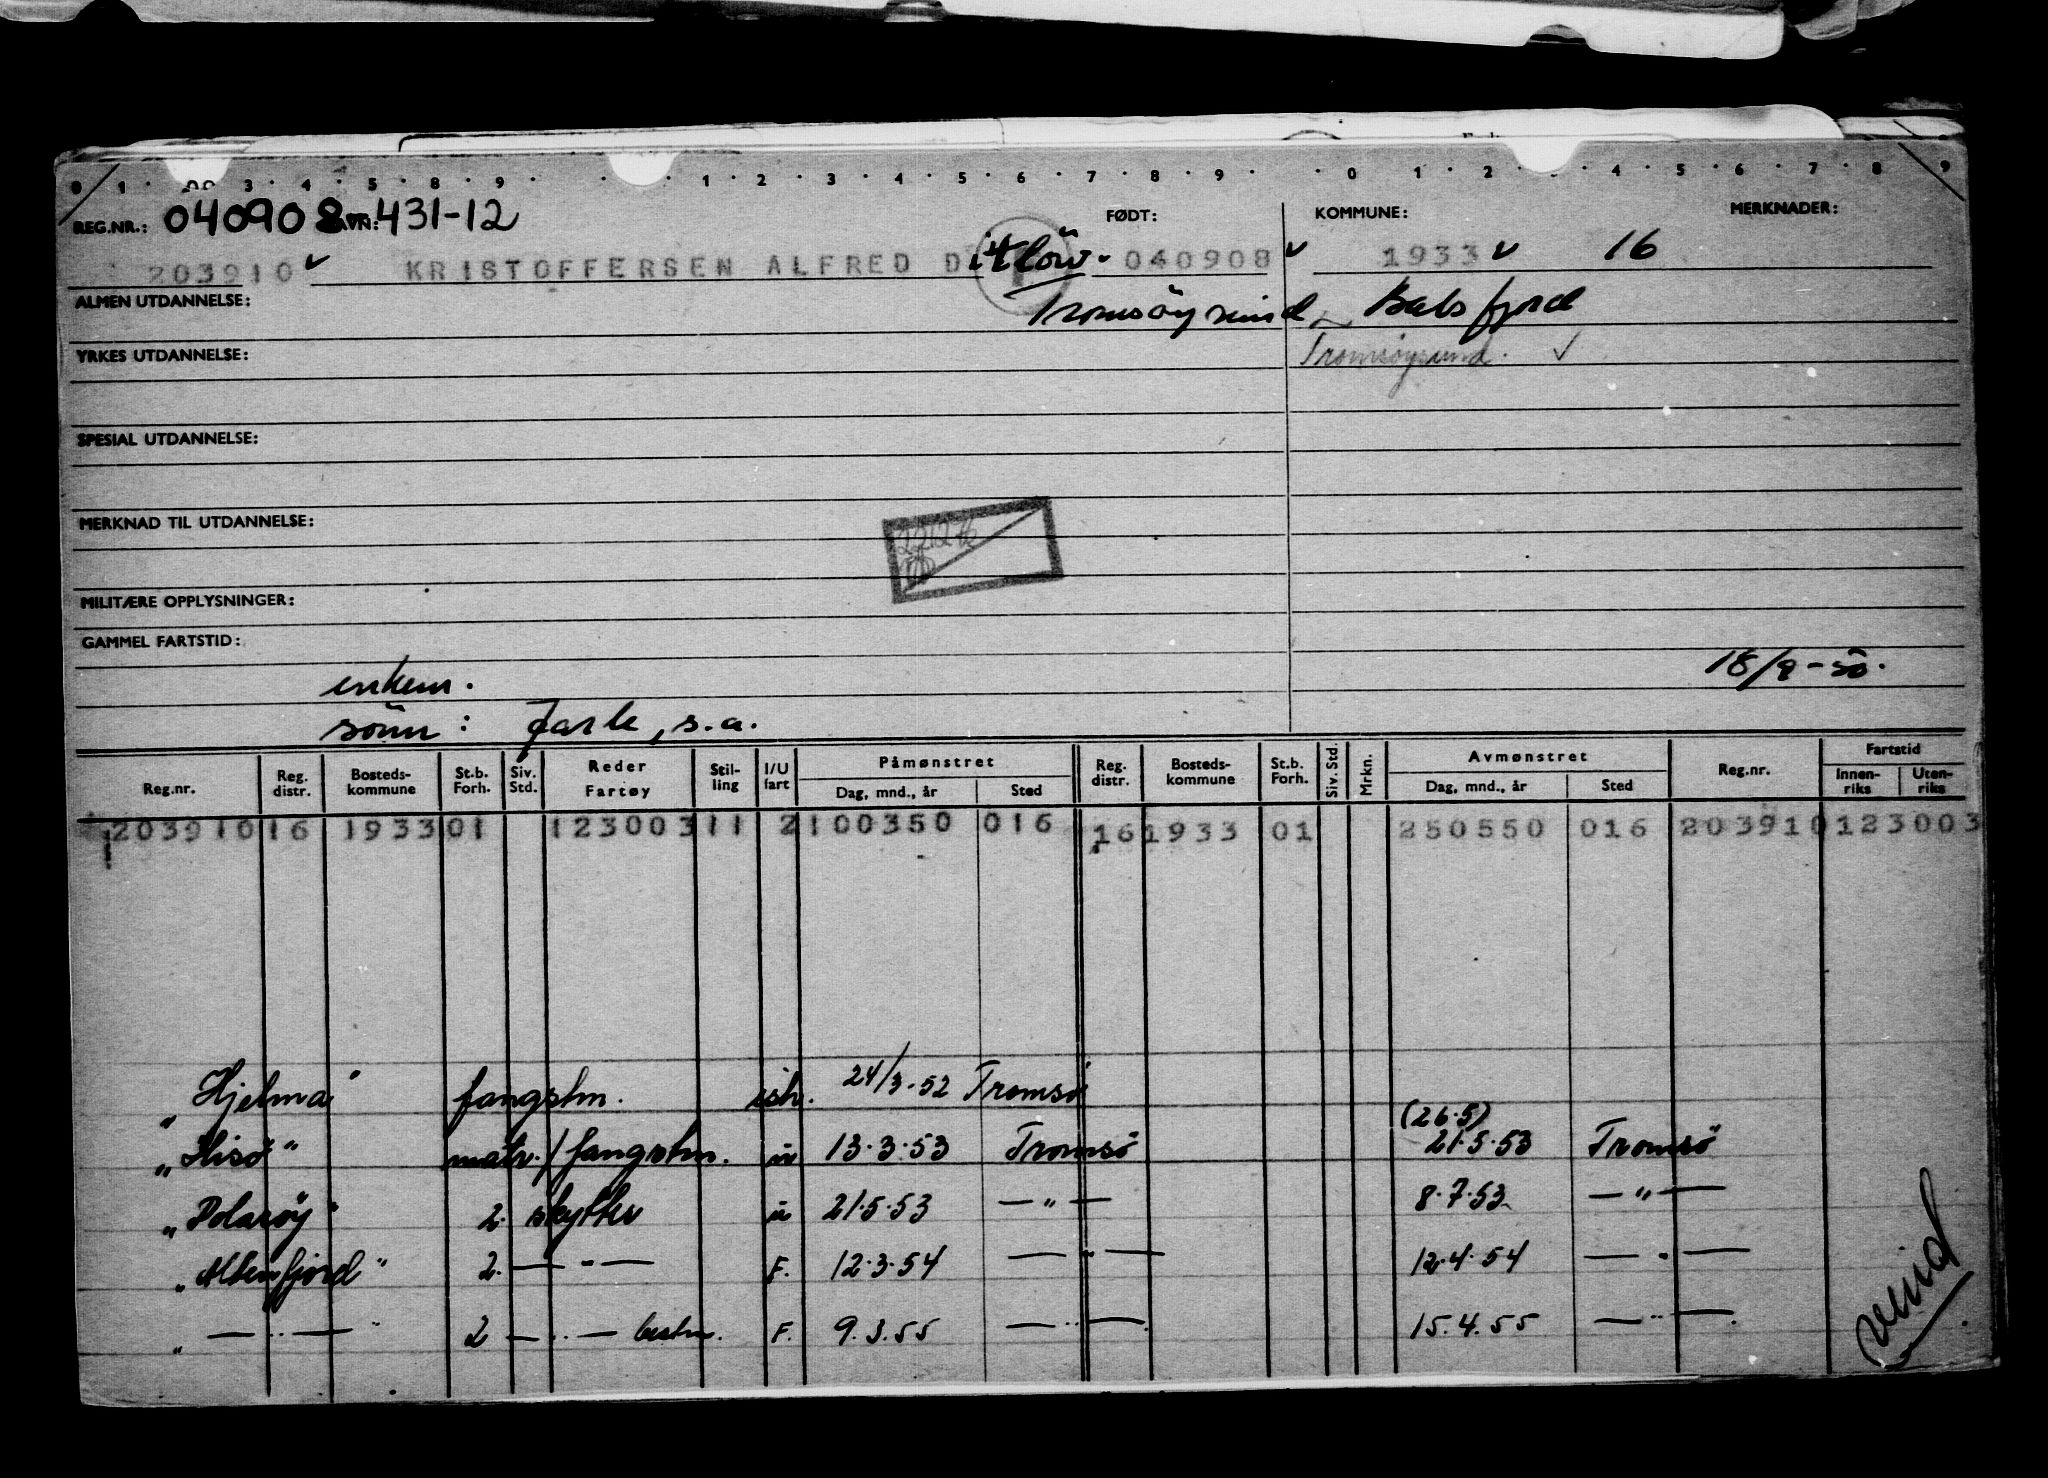 0 1 · 00 3 · 4 · 5 · 8 · 9 · · · 1 · 2 · 3 · 4 · 5 · 6 · 7 · 8 · 9 · · 0 · 1 · 2 · · 4 · 5 · 6 · 7 · 8 · 9
REG.NR.: 040908 AVN: 431-12 FØDT: KOMMUNE: MERKNADER:
203910 v KRISTOFFERSEN ALFRED Ditlöw. 040908 v 1933 v 16
ALMEN UTDANNELSE: Tromsöysund Balsfjord
YRKES UTDANNELSE: Tromsøysund. ✓
SPESIAL UTDANNELSE:
MERKNAD TIL UTDANNELSE:
MILITÆRE OPPLYSNINGER:
GAMMEL FARTSTID:
enkem. 18/9-50.
sönn: Jarle, s.a.
Reg.nr. Reg. distr. Bosteds-kommune St.b. Forh. Siv. Std. Reder Fartøy Stil-ling I/U fart Påmønstret Dag, mnd., år Sted Reg. distr. Bosteds-kommune St.b. Forh. Siv. Std. Mrkn. Avmønstret Dag, mnd., år Sted Reg.nr. Fartstid Innen-riks Uten-riks
203910 16 1933 01 123003 11 2 100350 016 16 1933 01 250550 016 203910 123003
"Hjelma" fangstm. ish. 24/3-52 Tromsö
(26.5)
"Hisö" matr./fangstm. u 13.3.53 Tromsö 21.5.53 Tromsö
"Polaröy" 2. skytter u 21.5.53 — " — 8.7.53 — " —
"Altenfjord" 2. — " — F. 12.3.54 — " — 12.4.54 — " —
" — " — " 2 — " — bestm. F. 9.3.55 — " — 15.4.55 — " —
vend